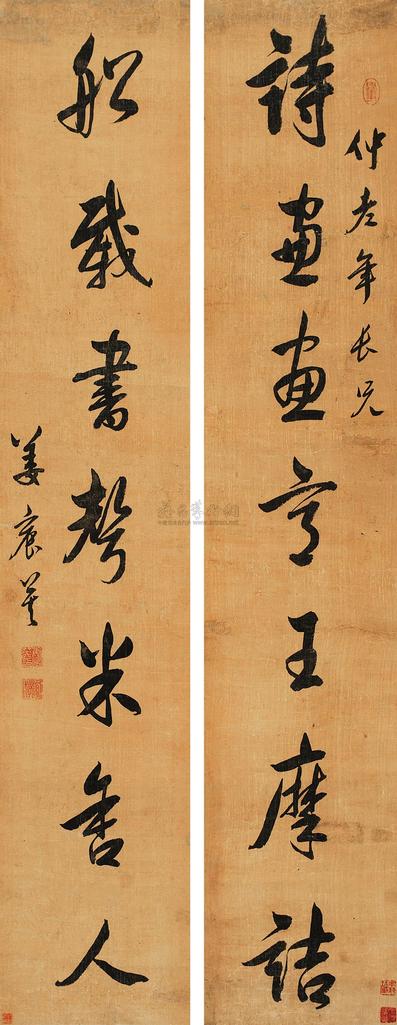 仲老年長兄
詩畫畫王摩詰
船載書聲米舍人
姜宸英